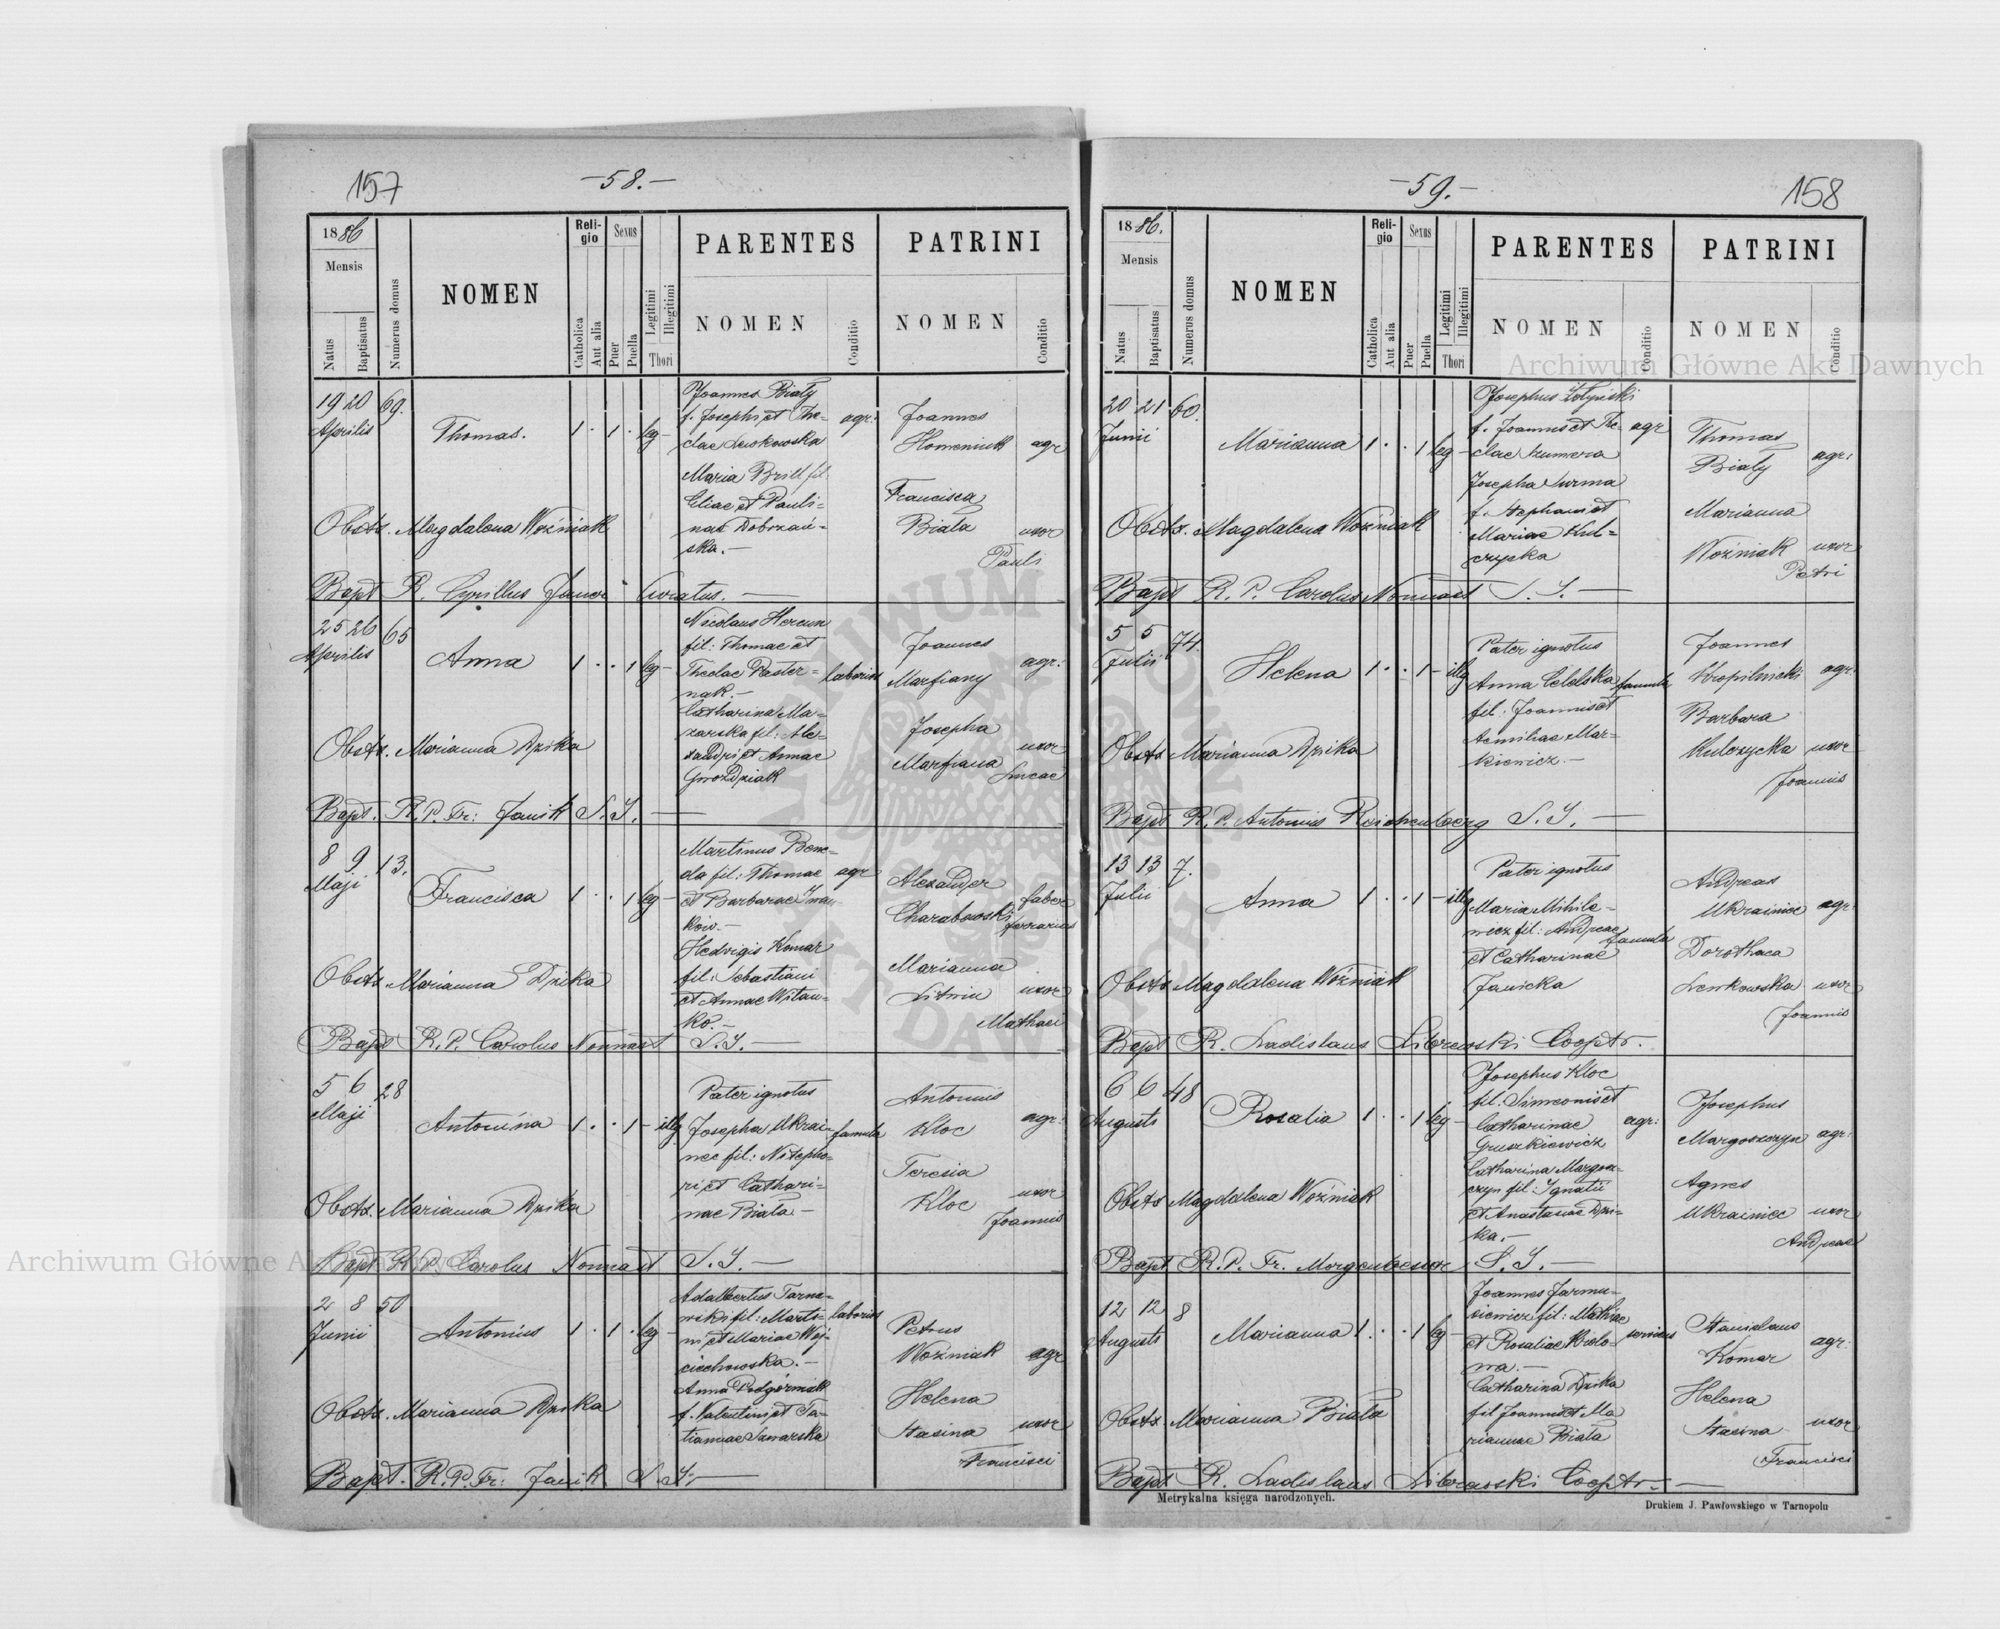 157
-58.-
1886
Mensis
Natus
Baptisatus
Numerus domus
NOMEN
Religio
Catholica
Aut alia
Sexus
Puer
Puella
Legitimi
Illegitimi
Thori
PARENTES
NOMEN
Conditio
PATRINI
NOMEN
Conditio
19 20 69.
Aprilis
Thomas.
1 . 1 . leg -
Joannes Biały
f. Josephi et The-
clae
agr:
Maria Brill fil:
Eliae et Pauli-
nae Dobrzań-
ska.-
Joannes
Homeniuk agr
Francisca
Biała uxor
Pauli
Obstx. Magdalena Woźniak
Bapt R. Cyrillus Curatus.
25 26 65
Aprilis
Anna
1 . . 1 leg -
Nicolaus Hereun
fil: Thomae et
Theclae Paster-
nak.-
Catharina Ma-
zarska fil: Ale-
xandri et Annae
Gwoździak
Joannes
Marfiany agr:
Josepha
Marfiana uxor
Lucae
Obstx. Marianna Dzika
Bapt. R. P. Fr: Janik S. J.
8 9 13.
Maji
Francisca
1 . . 1 leg -
Martinus Bene-
da fil: Thomae agr
et Barbarae Iwan-
ków.-
Hedvigis Komar
fil: Sebastiani
et Annae Witau-
ko.-
Alexander
faber
ferrarius
Marianna
Litwin uxor
Mathaei
Obstx. Marianna Dzika
Bapt R. P. Carolus Nonnast S. J.
5 6 28
Maji
Antonina
1 . . 1 - illg
Pater ignotus
Josepha Ukrai- famula
nec fil: Nicepho-
ri et Cathari-
nae Biała-
Antonius
Kloc agr:
Teresia
Kloc uxor
Joannis
Obstx. Marianna Dzika
Bapt R. P. Carolus Nonnast S. J.
2 8 50
Junii
Antonius
1 . 1 . leg -
Adalbertus Tarna-
wski fil: Marti-
ni et Mariae Woj-
ciechowska.-
Anna Podgórniak
f. Valentini et Ta-
tiannae Samarska
Petrus
Woźniak agr
Helena
Stasina uxor
Francisci
Obstx. Marianna Dzika
Bapt. R. P. Fr: Janik S. J.
-59.-
158
1886.
Mensis
Natus
Baptisatus
Numerus domus
NOMEN
Religio
Catholica
Aut alia
Sexus
Puer
Puella
Legitimi
Illegitimi
Thori
PARENTES
NOMEN
Conditio
PATRINI
NOMEN
Conditio
20 21 60.
Junii
Marianna
1 . . 1 leg -
Josephus
f. Joannis et The- agr
clae Szumera
Josepha Surma
f. Stephani et
Mariae Kul-
czycka
Thomas
Biały agr:
Marianna
Woźniak uxor
Petri
Obstx. Magdalena Woźniak
Bapt R. P. Carolus Nonnast S. J.
5 5 74.
Julii
Helena
1 . . 1 - illg
Pater ignotus
Anna Celelska famula
fil: Joannis et
Aemiliae Mar-
kiewicz.-
Joannes
Kropilnicki agr.
Barbara
Kulczycka uxor
Joannis
Obstx Marianna Dzika
Bapt R. P. Antonius Reichenberg S. J.
13 13 7.
Julii
Anna
1 . . 1 - illg
Pater ignotus
Maria Mihile-
wicz fil: Andreae famula
et Catharinae
Janicka
Andreas
Ukrainiec agr.
Dorothaea
Lewkowska uxor
Joannis
Obstx Magdalena Woźniak
Bapt R. Ladislaus Librewski Cooptr.
6 6 48
Augusti
Rosalia
1 . . 1 leg -
Josephus Kloc
fil: Simeonis et
Catharinae agr:
Gruszkiewicz
Catharina Margosz-
czyn fil: Ignatii
et Anastasiae Dzi-
ka.-
Josephus
Margoszczyn agr:
Agnes
Ukrainiec uxor
Andreae
Obstx Magdalena Woźniak
Bapt R. P. Fr. Morgenbesser S. J.
12 12 8
Augusti
Marianna
1 . . 1 leg -
Joannes Jarmu-
siewicz fil: Mathiae
et Rosaliae Wolo-
wa.-
Catharina Dzika
fil Joannis et Ma
riannae Biała
Stanislaus
Komar agr.
Helena
Stasina uxor
Francisci
Obstx. Marianna Biała
Bapt R. Ladislaus Librewski Cooptr.
Metrykalna księga narodzonych.
Drukiem J. Pawłowskiego w Tarnopolu
Archiwum Główne Akt Dawnych
Archiwum Główne Akt Dawnych